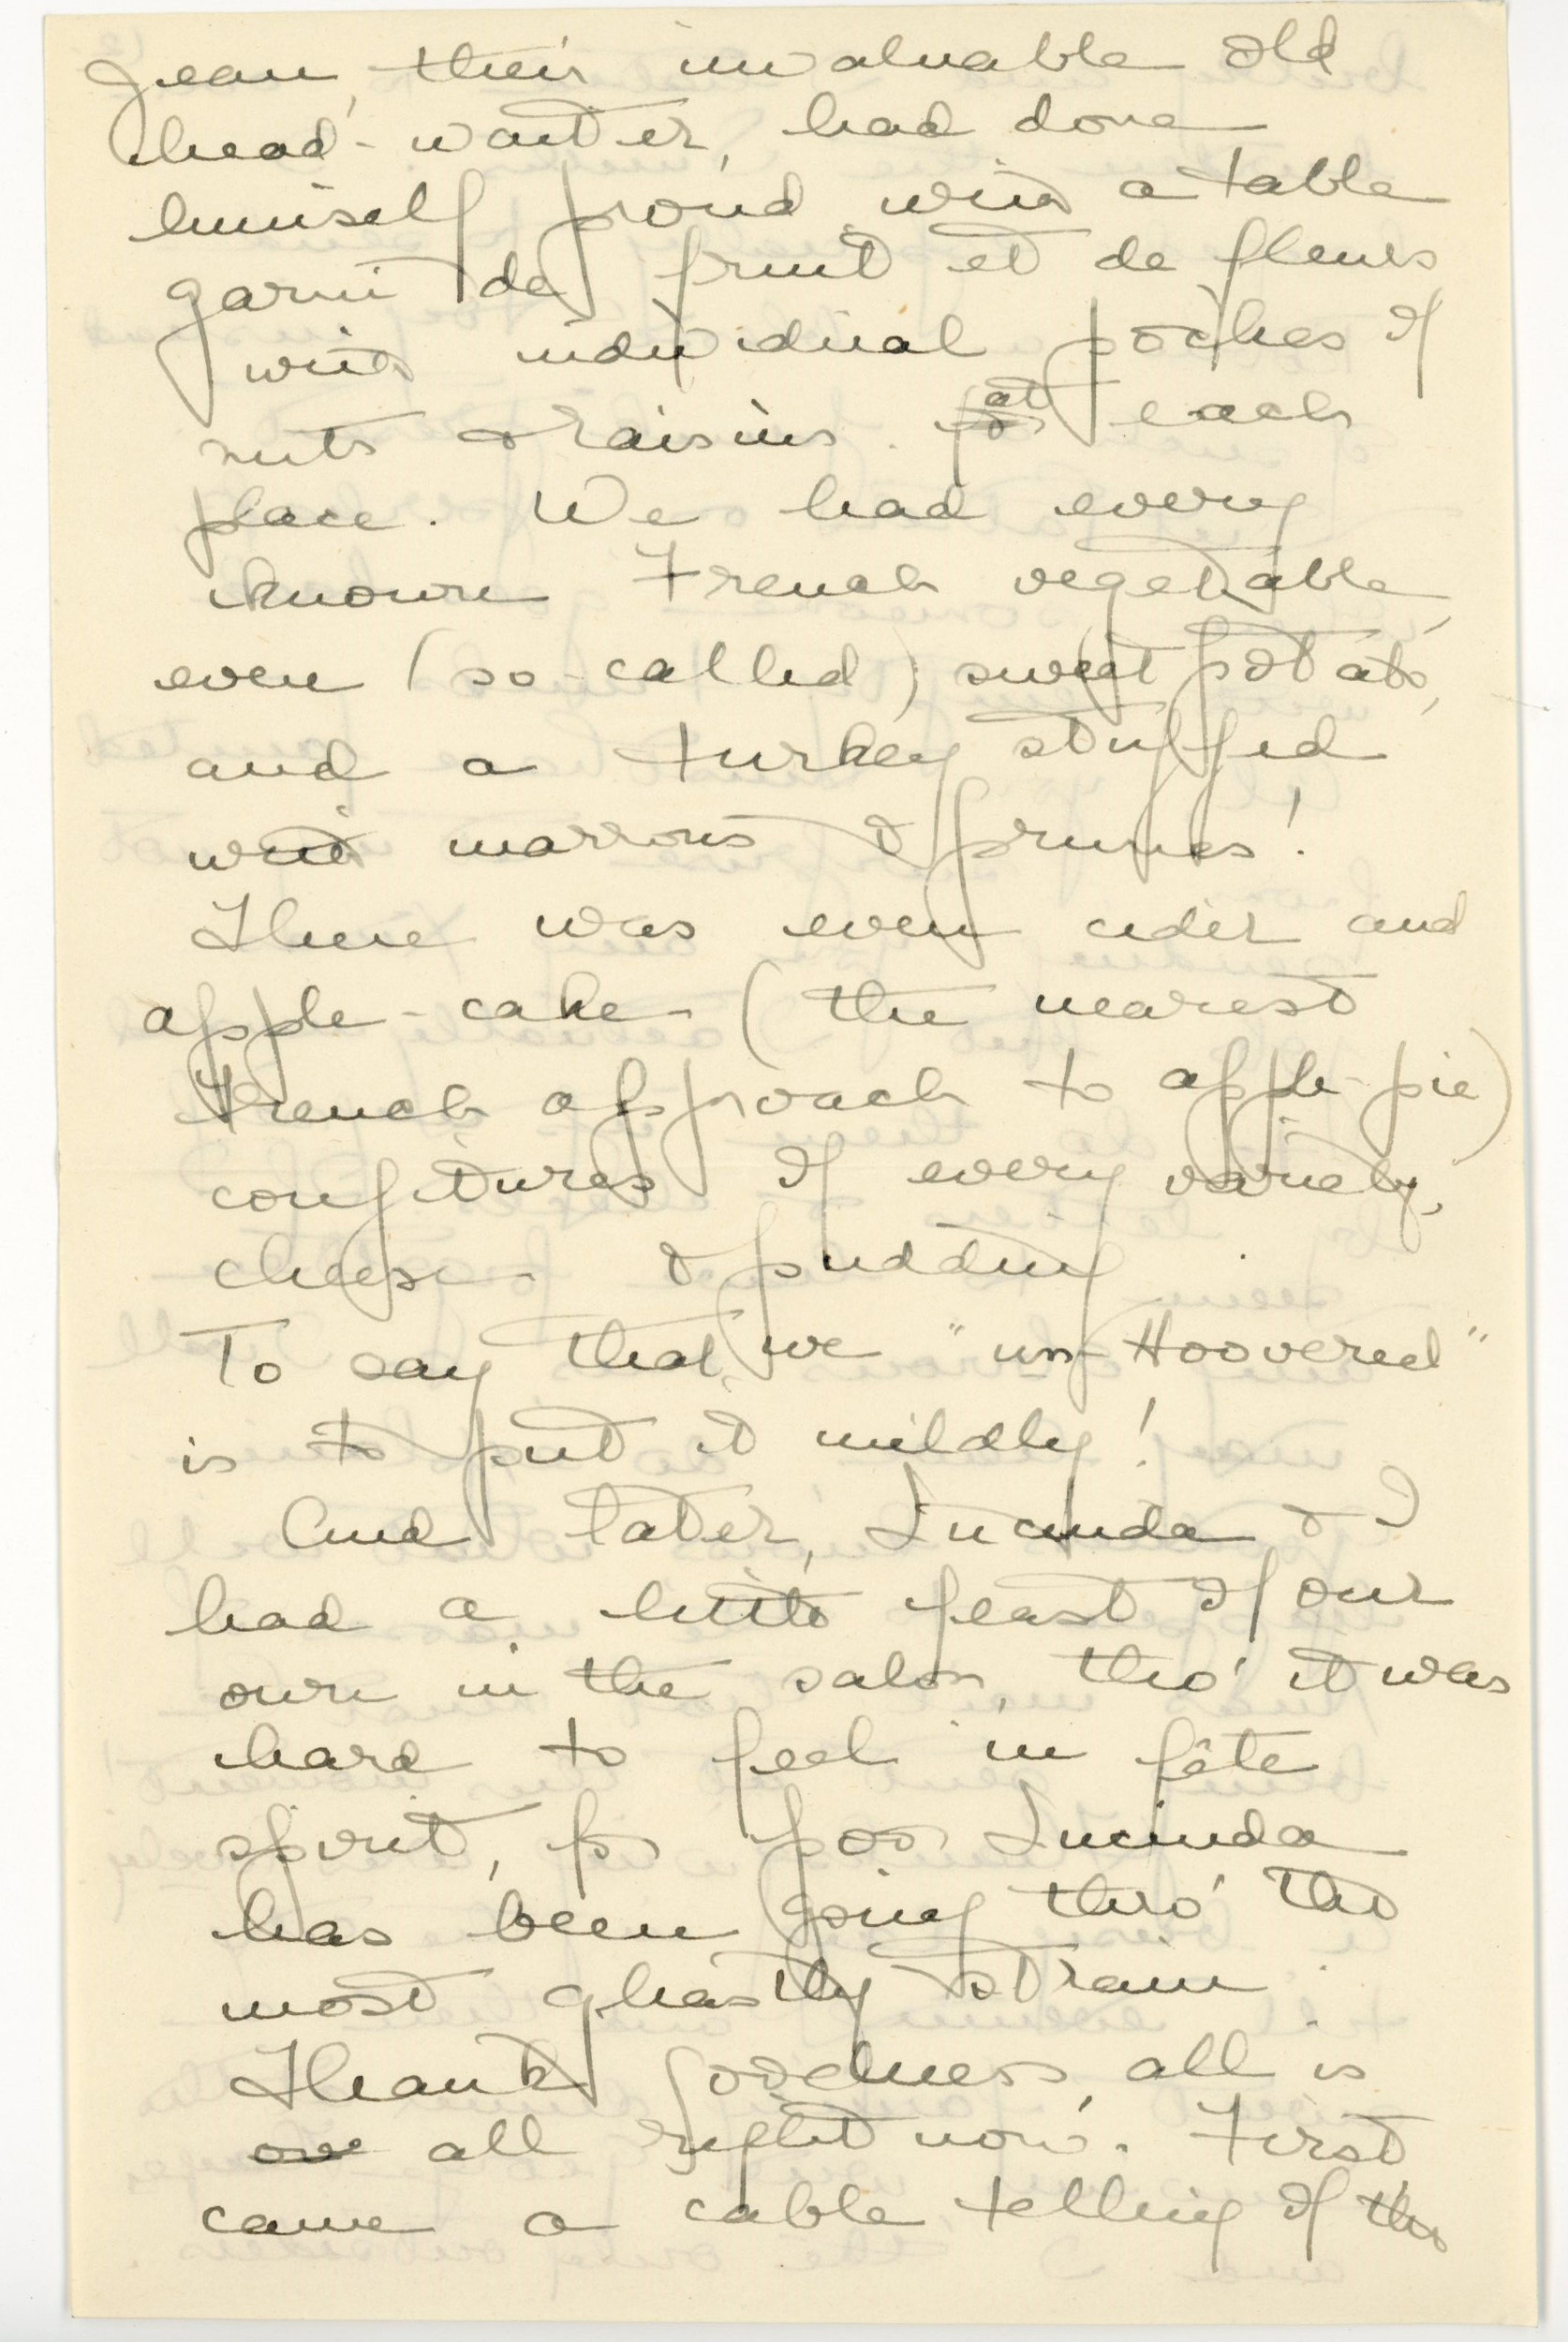 Jean, their invaluable old
head-waiter, had done
himself proud with a table
garni de fruit et de fleurs
with individual poches of
nuts & raisins. for at each
place. We had every
known French vegetable,
even (so-called) sweet potato,
and a turkey stuffed
with marrons & prunes!
There was even cider and
apple-cake - (the nearest
French approach to apple-pie)
confitures of every variety,
cheese - & pudding.
To say that we "un-Hoovered"
is to put it mildly!
And later, Lucinda & I
had a little feast of our
own in the salon, tho' it was
hard to feel in fête
spirit, for poor Lucinda
has been going thro' the
most ghastly strain.
Thank goodness, all is
ove all right now. First
came a cable telling of the